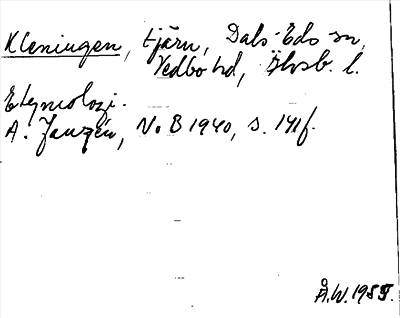 Kleningen, tjärn, Dals-Eds sn,
Vedbo hd, Älvsb. l.
Etymologi.
A. Janzén, N.o.B 1940, s. 141f.
Å.W. 1959.